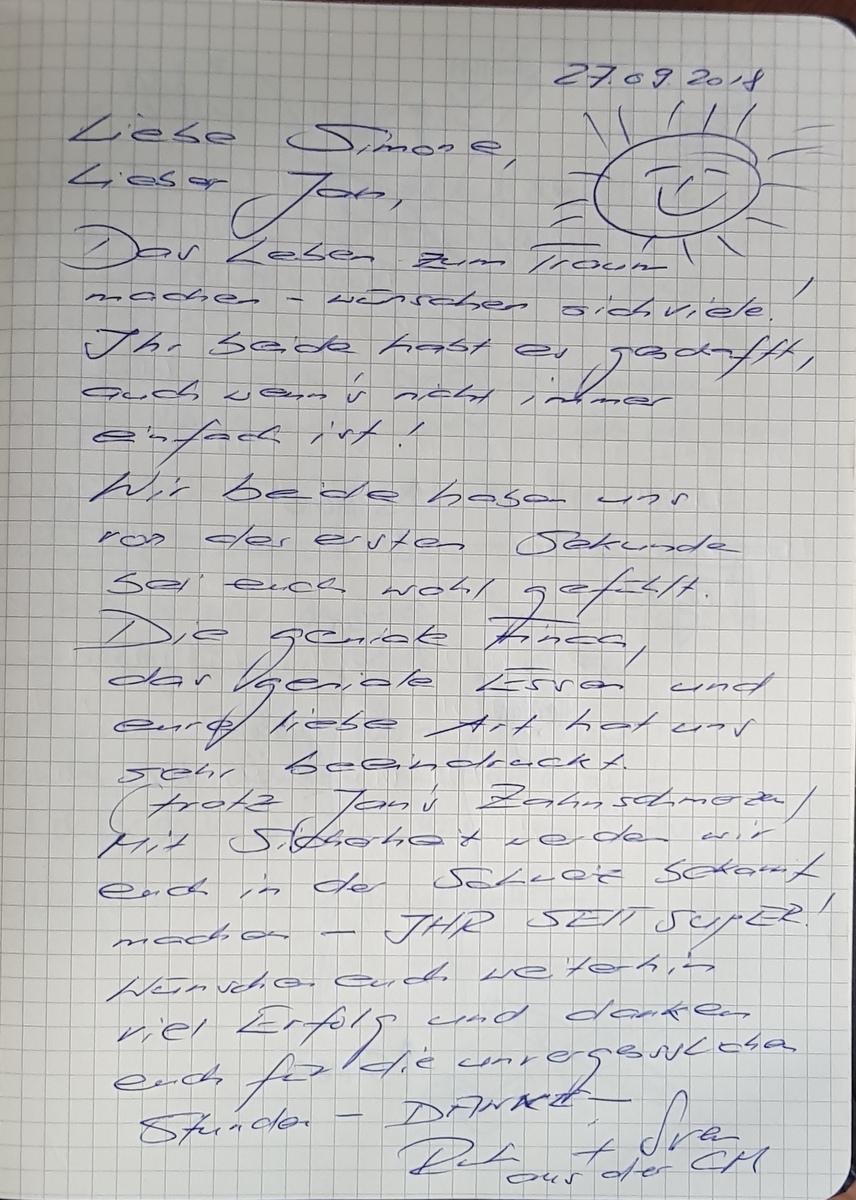 27.09.2018
Liebe Simone,
Lieber Jan,
Das Leben zum Traum
machen - wünschen sich viele!
Ihr beide habt es geschafft,
auch wenn's nicht immer
einfach ist!
Wir beide haben uns
von der ersten Sekunde
bei euch wohl gefühlt.
Die geniale Finca,
das geniale Essen und
eure liebe Art hat uns
sehr beeindruckt.
(trotz Jan's Zahnschmerzen)
Mit Sicherheit werden wir
euch in der Schweiz bekannt
machen - IHR SEIT SUPER!
Wünschen euch weiterhin
viel Erfolg und danken
euch für die unvergesslichen
Stunden - DANKE -
+ Sven
aus der CH